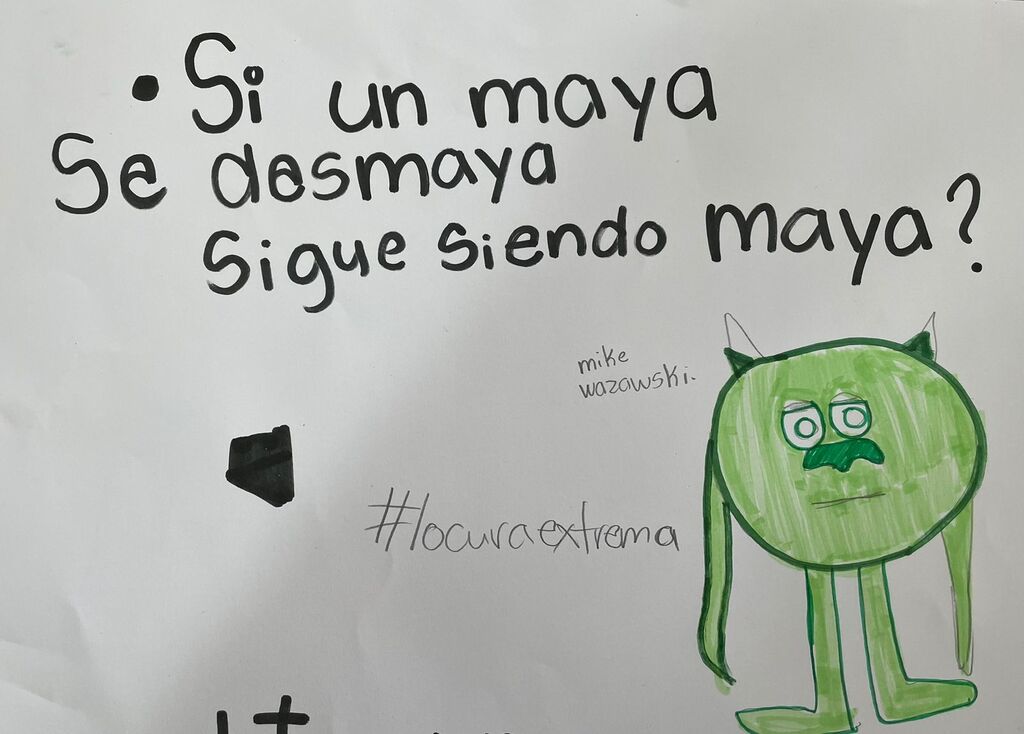 • Si un maya
Se desmaya
Sigue siendo maya?
mike
wazawski.
#locuraextrema